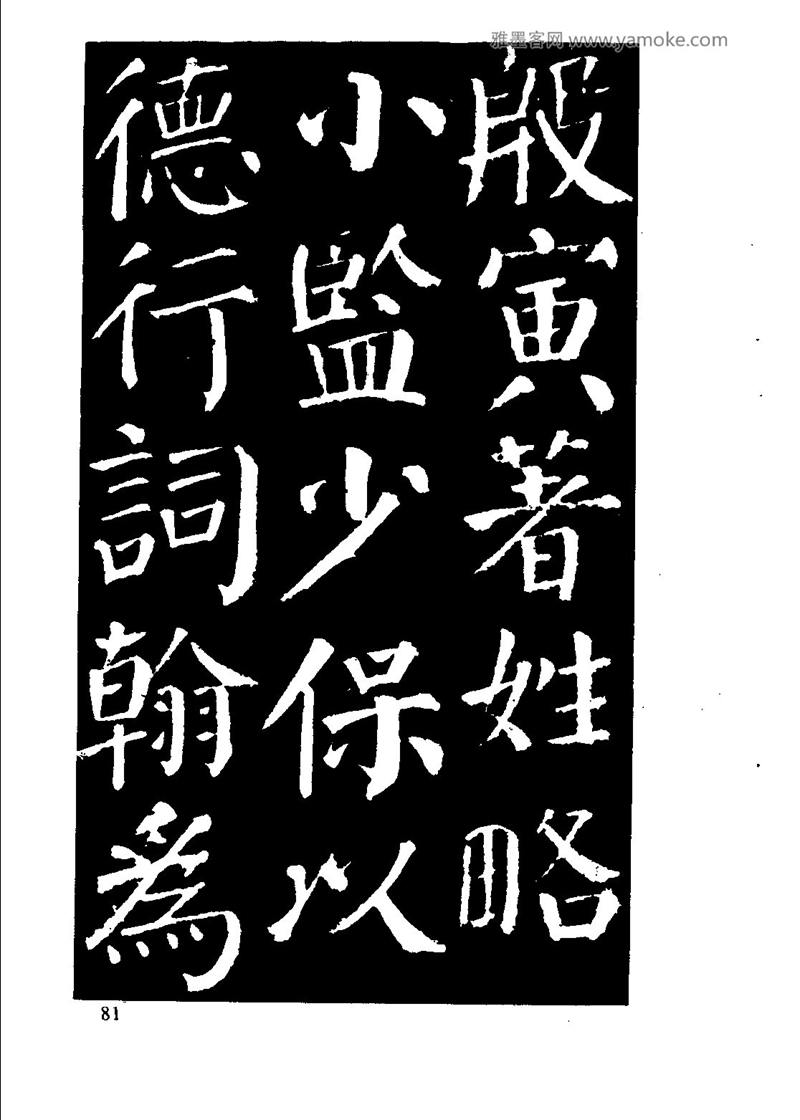 雅墨客网 www.yamoke.com
殷寅著姓略
小監少保以
德行詞翰為
81